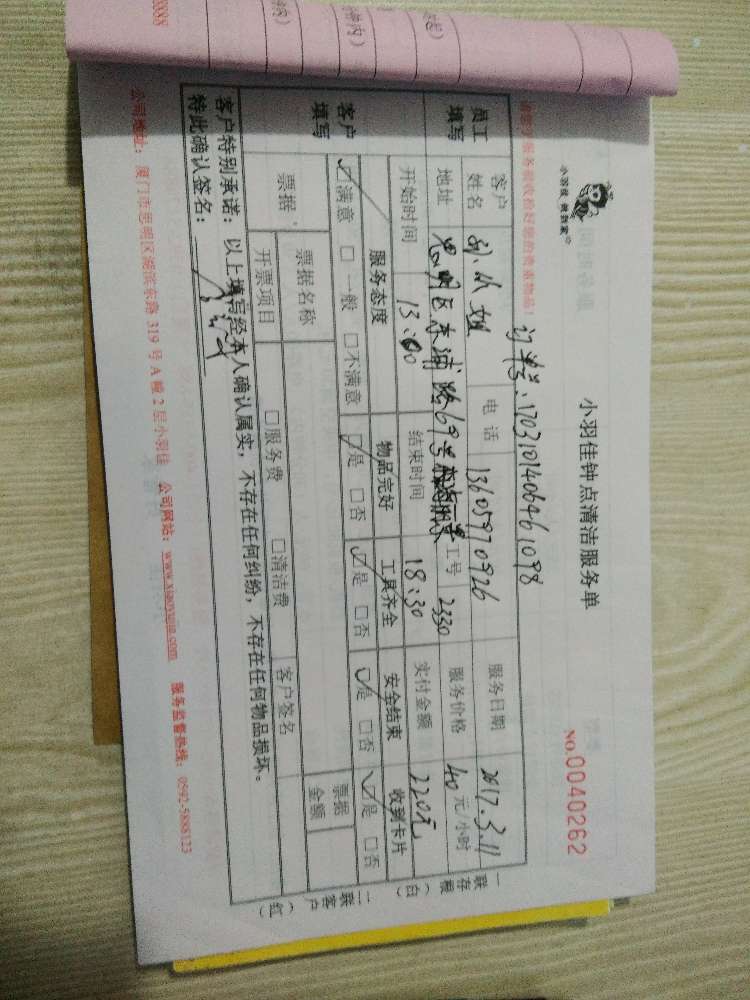 小羽佳 做到家
小羽佳钟点清洁服务单
NO.0040262
订单号:170310140646461098
员工填写
客户姓名
电话 13605970926
服务日期 2017.3.11
地址
工号 2330
服务价格 40 元/小时
开始时间 13:00
结束时间 18:30
实付金额 220元
客户填写
服务态度
物品完好
工具齐全
安全结束
收到卡片
☑满意 □一般 □不满意
☑是 □否
☑是 □否
☑是 □否
☑是 □否
票据
票据名称
客户签名
票据金额
开票项目
□服务费 □清洁费
一联存根(白) 二联客户(红)
客户特别承诺:以上填写经本人确认属实,不存在任何纠纷,不存在任何物品损坏。
特此确认签名:
公司地址:厦门市思明区湖滨东路 319 号 A 幢 2 层小羽佳 公司网站:www.xiaoyujia.com 服务监督热线:0592-5888123